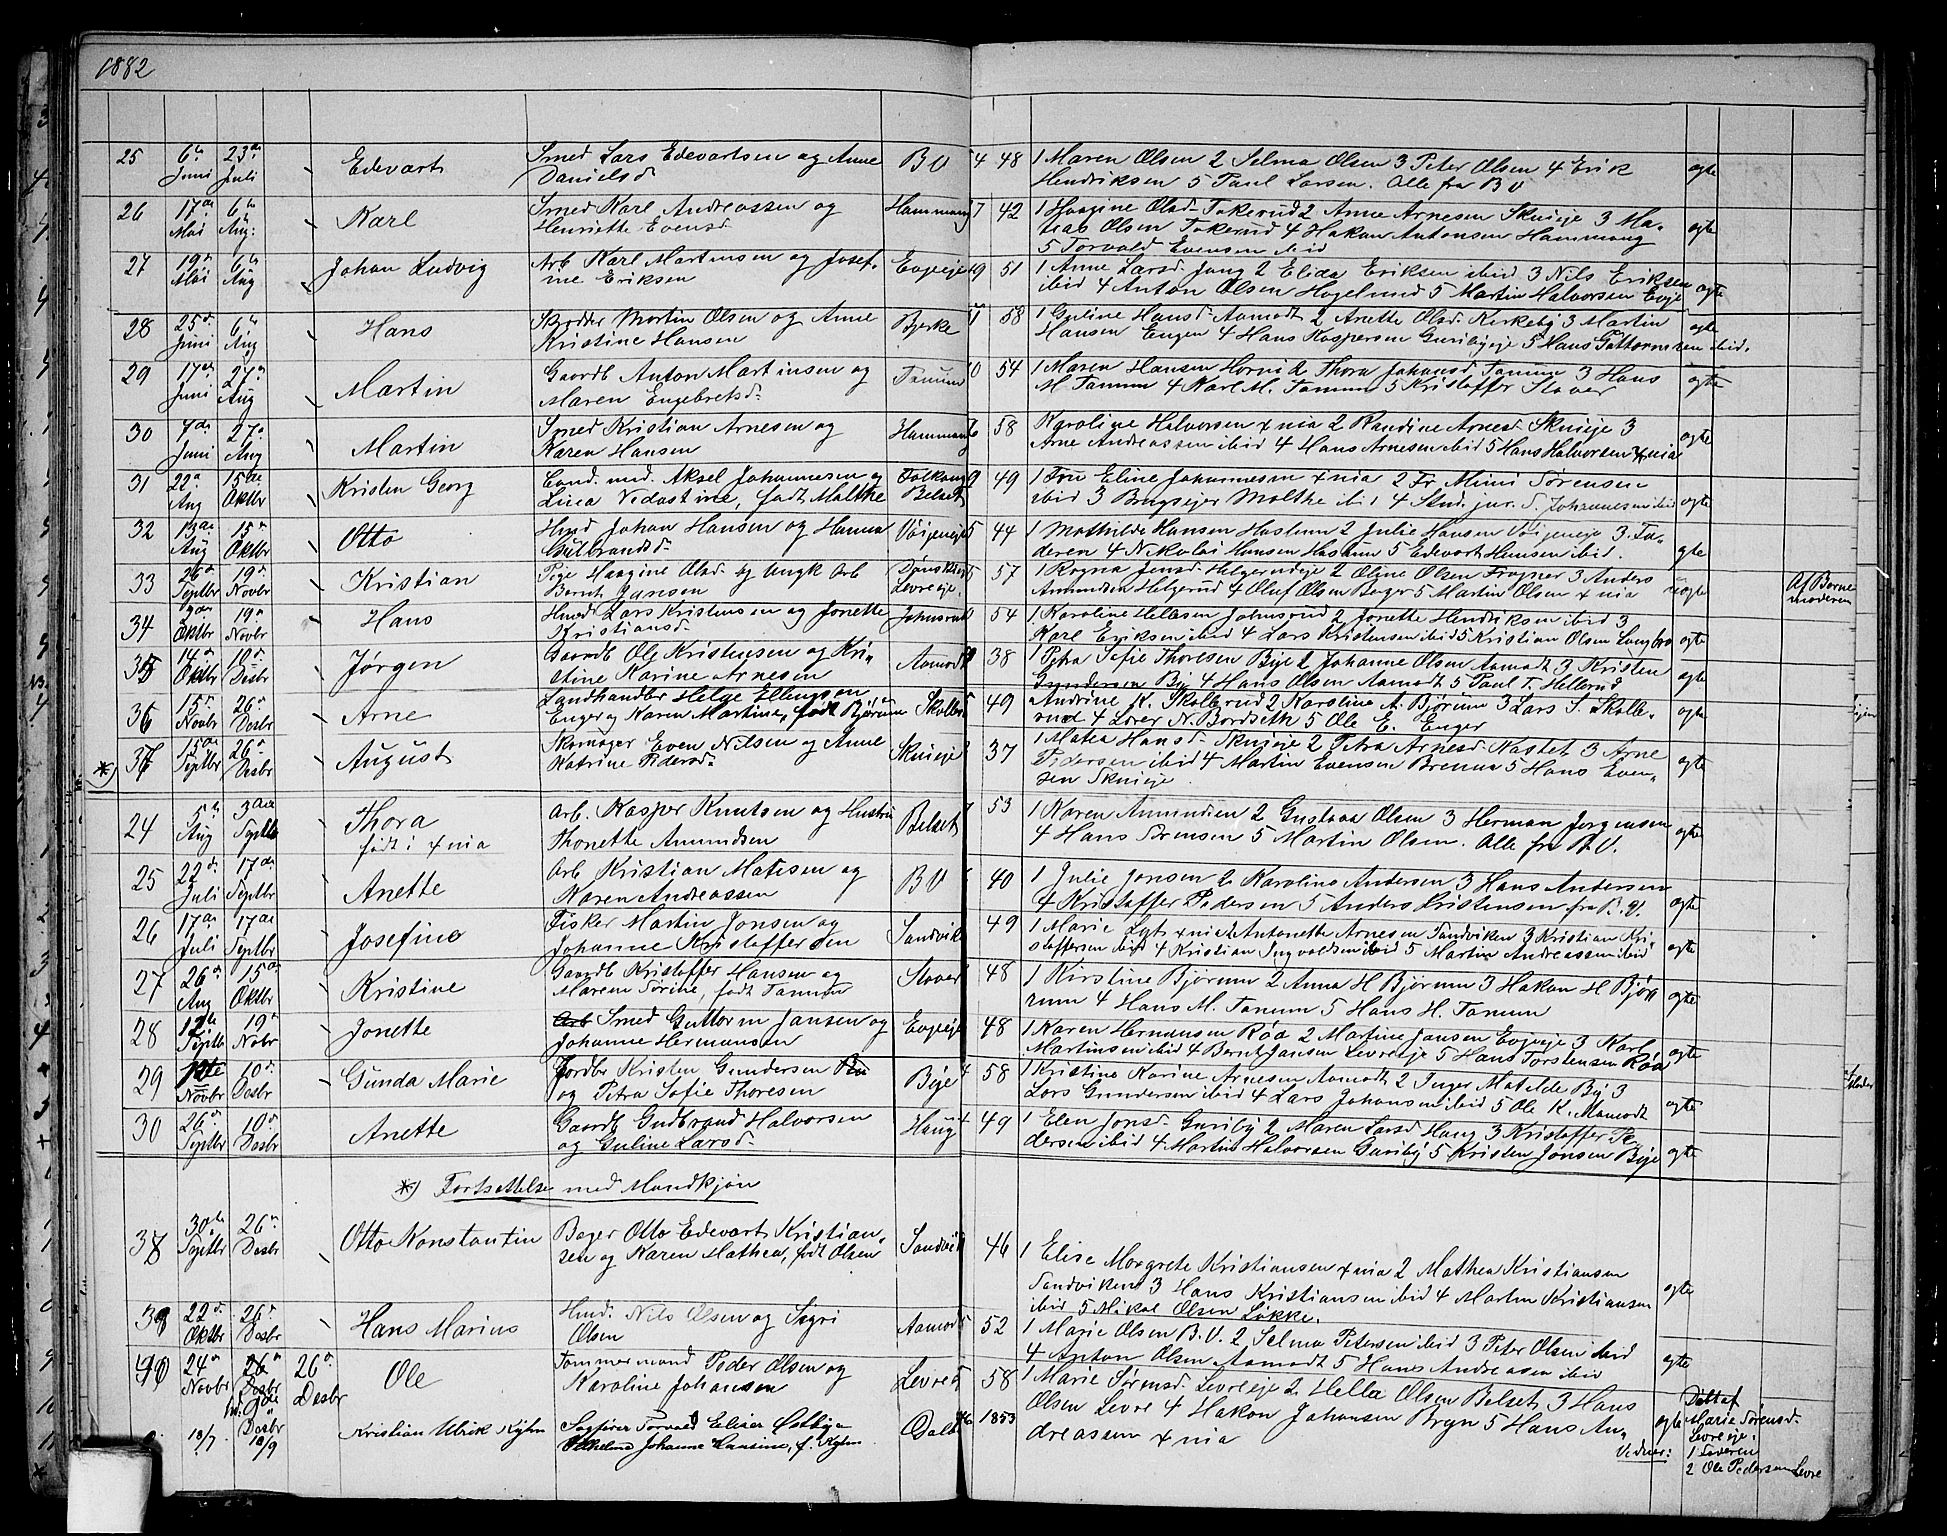 1882
25 6te Juni 23de Juli Edevart Smed Lars Edevartsen og Anne Danielsd BV 48 1 Maren Olsen 2 Selma Olsen 3 Peter Olsen 4 Erik
Hendriksen 5 Paul Larsen. Alle fra BV ægte
26 17de Mai 6te Aug: Karl Smed Karl Andreassen og Henriette Evensd. Hammang 42 1 Haagine Olsd. Tokerud 2 Anne Arnesen Skuieje 3 Ma-
tias Olsen Tokerud 4 Hakon Antonsen Hammang
5 Torvald Evensen ibid ægte
27 19de Mai 6te Aug Johan Ludvig Arb Karl Martinsen og Josefine Eriksen Evjeeje 51 1 Anne Larsd. Jong 2 Elida Eriksen ibid 3 Nils Eriksen
ibid 4 Anton Olsen Hogelund 5 Martin Halvorsen Evje ægte
28 25de Juni 6te Aug Hans Skrædder Martin Olsen og Anne Kristine Hansen Bjerke 58 1 Guline Hansd. Aamodt 2 Anette Olsd. Kirkeby 3 Martin
Hansen Engen 4 Hans Kaspersen Guribyeje 5 Hans Guttormsen ibid. ægte
29 17de Juni 27de Aug Martin Gaardb Anton Martinsen og Maren Engebretsd. Tanum 54 1 Maren Hansen Horni 2 Thora Johansd. Tanum 3 Hans
M. Tanum 4 Karl M. Tanum 5 Kristoffer Stover ægte
30 7de Juni 27de Aug Martin Smed Kristian Arnesen og Karen Hansen Hammang 58 Karoline Halvorsen Xnia 2 Randine Arnesd. Skuieje 3
Arne Andreassen ibid 4 Hans Arnesen ibid 5 Hans Halvorsen Xnia ægte
31 22de Aug 15de Oktbr Kristen Georg Cand. med. Aksel Johannesen og Lina Vedastine, født Malthe Belset 49 1 Fru Eline Johannesen Xnia 2 Fr. Mimi Sørensen
ibid 3 Brugsejer Malthe ibid 4 Stud. jur. S. Johannesen ibid ægte
32 13de Aug 15de Oktbr Otto Hmd Johan Hansen og Hanna Gulbrandsd. Vøijeneje 44 1 Mathilde Hansen Haslum 2 Julie Hansen Vøijeneje 3 Fa-
deren 4 Nikolai Hansen Haslum 5 Edevart Hansen ibid. ægte
33 26de Septbr 19de Novbr Kristian Pige Haagine Olsd. og Ungk Arb Bernt Jansen Levreeje 57 1 Ragna Jensd. Helgerudeje 2 Oline Olsen Frogner 3 Anders
Amundsen Helgerud 4 Oluf Olsen Bager 5 Martin Olsen Xnia uægte Af Barnemoderen
34 Oktbr 19de Novbr Hans Hmd Lars Kristensen og Jonette Kristiansd. Johnsrud 54 1 Karoline Hellesen Johnsrud 2 Jonette Hendriksen ibid 3
Karl Eriksen ibid 4 Lars Kristensen ibid 5 Kristian Olsen ægte
35 14de Oktbr 10de Desbr Jørgen Gaardb Ole Kristensen og Kristine Karine Arnesen Aamodt 38 1 Petra Sofie Thoresen Bye 2 Johanne Olsen Aamodt 3 Kristen
Gundersen By 4 Hans Olsen Aamodt 5 Paul T. Hellerud ægte
36 15de Novbr 26de Desbr Arne Landhandler Helge Ellingsen Enger og Karen Martine, født Bjørum 49 Andrine K. Skollerud 2 Karoline A. Bjørum 3 Lars S. Skolle-
rud 4 Lærer N. Bordseth 5 Ole E. Enger ægte
37 15de Septbr 26de Desbr August Skomager Even Nilsen og Anne Katrine Pedersd. Skuieje 37 1 Matea Hansd. Skuieje 2 Petra Arnesd. Kastet 3 Arne
Pedersen ibid 4 Martin Evensen Brenna 5 Hans Even-
sen Skuieje. ægte
*)
24 5te Aug 3die Septbr Thora født i Xnia Arb. Kasper Knutsen og Hustru Thonette Amundsen Belset 53 1 Karen Amundsen 2 Gustava Olsen 3 Herman Jørgensen
4 Hans Sørensen 5 Martin Olsen. Alle fra B.V. ægte
25 22de Juli 17de Septbr Anette Arb Kristian Matisen og Karen Andreassen BV 40 1 Julie Jonsen 2 Karoline Andersen 3 Hans Andersen
4 Kristoffer Pedersen 5 Anders Kristensen fra B.V. ægte
26 17de Juli 17de Septbr Josefine Fisker Martin Jonsen og Johanne Kristoffersen Sandvik 49 1 Marie Xnia 2 Antonette Arnesen Sandviken 3 Kristian Kri-
stoffersen ibid 4 Kristian Ingvoldsen ibid 5 Martin Andreassen ibid ægte
27 26de Aug 15de Oktbr Kristine Gaardb Kristoffer Hansen og Maren Sørine, født Tanum Stover 48 1 Kirstine Bjørum 2 Anna H Bjørum 3 Hakon H Bjø-
rum 4 Hans M. Tanum 5 Hans H. Tanum ægte
28 12te Septbr 19de Nobr Jonette Smed Guttorm Jansen og Johanne Hermansen Evjeeje 48 1 Karen Hermansen Røa 2 Martine Jansen Evjeeje 3 Karl
Martinsen ibid 4 Bernt Jansen Levreeje 5 Hans Torstensen Røa ægte
29 Novbr 10de Desbr Gunda Marie Jordbr Kristen Gundersen og Petra Sofie Thoresen Bye 58 1 Kristine Karine Arnesen Aamodt 2 Inger Matilde By 3
Lars Gundersen ibid 4 Lars Johansen ibid 5 Ole K. Aamodt ægte
30 26de Septbr 10de Desbr Anette Gaardb Gudbrand Halvorsen og Guline Larsd. Haug 49 1 Elen Jonsd. Guriby 2 Maren Larsd Haug 3 Kristoffer Pe-
dersen ibid 4 Martin Halvorsen Guriby 5 Kristen Jonsen Bye ægte
*) Fortsettelse med Mandkjøn
38 30te Septbr 26de Desbr Otto Konstantin Bager Otto Edevart Kristiansen og Karen Mathea, født Olsen Sandvik 46 1 Elise Margrete Kristiansen Xnia 2 Mathea Kristiansen
Sandviken 3 Hans Kristiansen ibid 4 Martin Kristiansen
ibid 5 Mikal Olsen Løkke. ægte
39 22de Oktbr 26de Desbr Hans Marius Hmd. Nils Olsen og Sigri Olsen Aamodt 52 1 Marie Olsen B.V. 2 Selma Petersen ibid 3 Peter Olsen ibid
4 Anton Olsen Aamodt 5 Hans Andreasen ibid ægte
40 24de Novbr 26de Desbr 26de Desbr Ole Tømmermand Peder Olsen og Karoline Johansen Levre 58 1 Marie Sørensd. Levreeje 2 Hella Olsen Belset 3 Hans
Olsen Levre 4 Hakon Johansen Bryn 5 Hans An-
dreassen Xnia ægte
Døbt af Marie Sørensd. Levreeje.
Vidner: 1 Faderen
2 Ole Pedersen Levre
18/7 10/9 Kristian Ulrik Kyhn Sagfører Torvald Elisær Østbye Johanne Lausine, f. Kyhn 1853